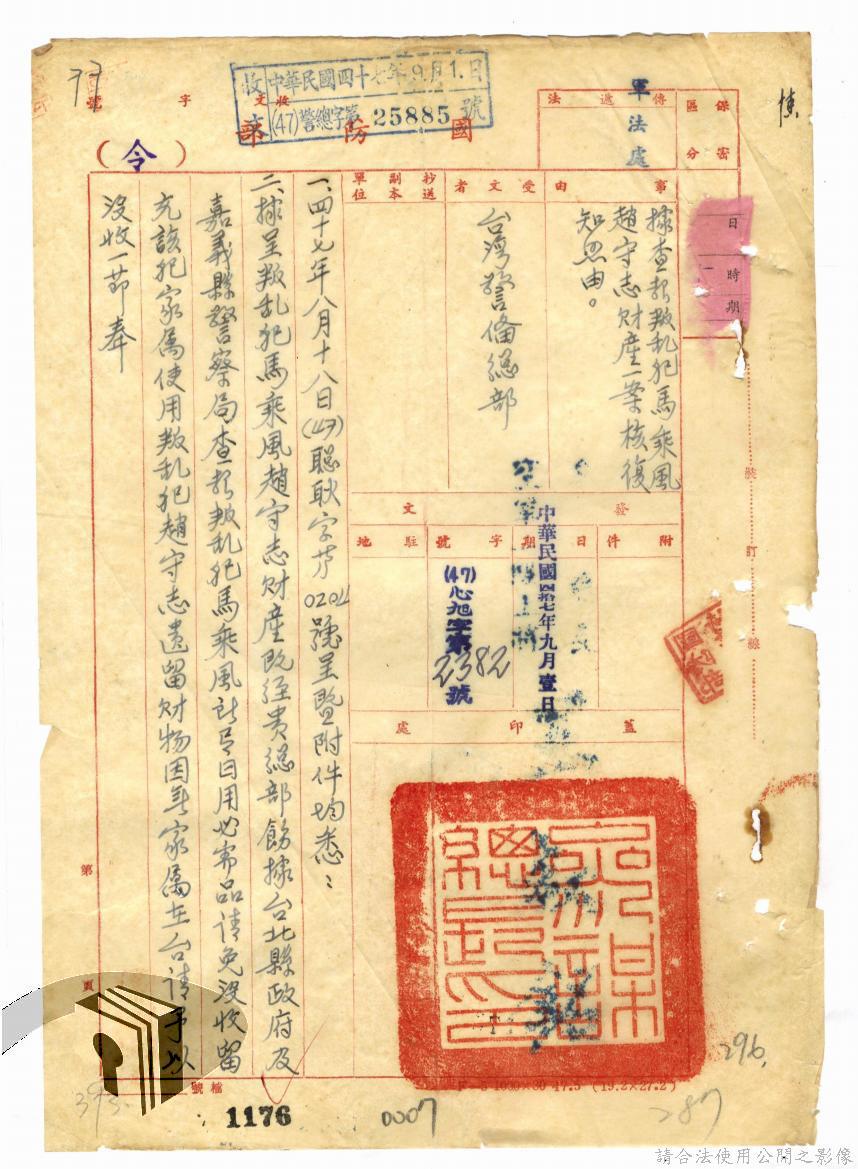 77
收文 中華民國四十七年9月1.日
(47)警總字第25885號
收文 字 號
國防部
(令)
保密區分
傳遞法
軍法處
日
時
期
事由
據查報叛乱犯馬乘風
趙守志財產一案核復
知照由。
受文者
台灣警備總部
抄送副本單位
發文
附件
日期
中華民國四拾七年九月壹日
字號
(47)心旭字第
2382
號
駐地
蓋印處
裝訂線
一、四十七年八月十八日(47)聰耿字第0204號呈暨附件均悉：
二、據呈叛乱犯馬乘風趙守志財產既經貴總部飭據台北縣政府及
嘉義縣警察局查報叛乱犯馬乘風所有日用必需品請免沒收留
充該犯家屬使用叛乱犯趙守志遺留財物因無家屬在台請予以
沒收一節奉
第
頁
檔號
1176
0007
287
296
(19.2×27.2)
請合法使用公開之影像